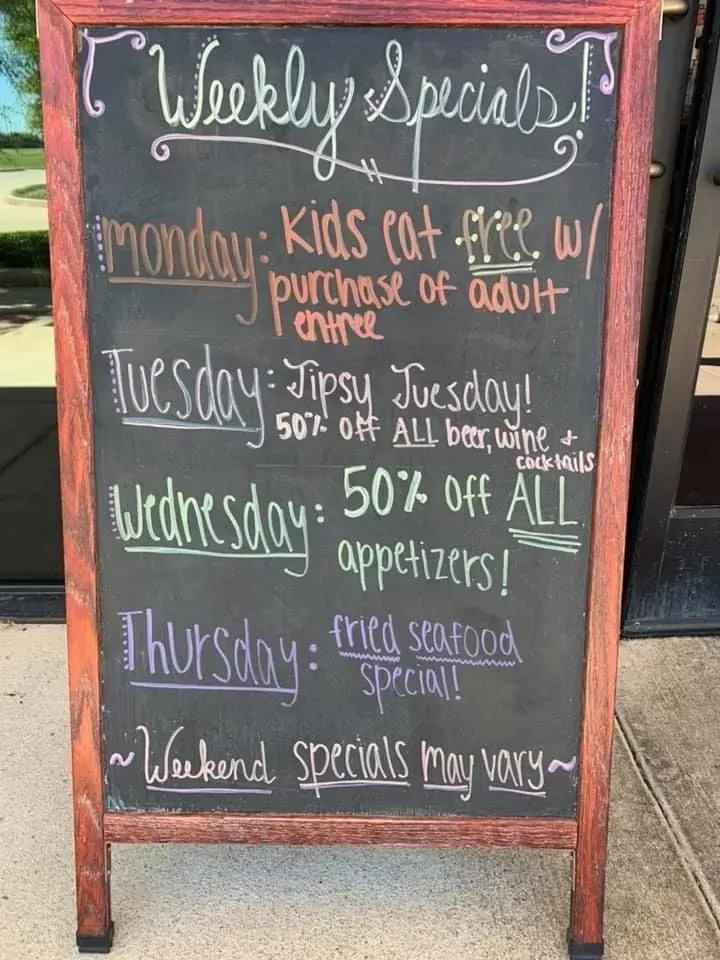 Weekly Specials!
monday: Kids eat free w/
purchase of adult
entree
Tuesday: Tipsy Tuesday!
50% off ALL beer, wine +
cocktails
Wednesday: 50% off ALL
appetizers!
Thursday: fried seafood
special!
~Weekend specials may vary~